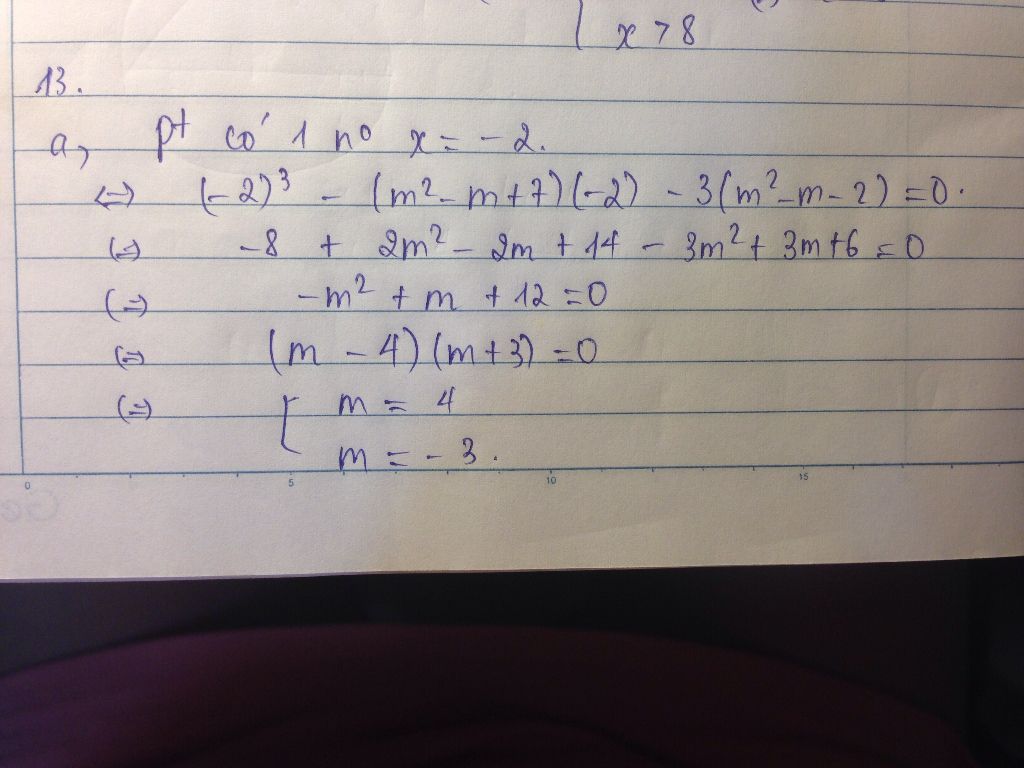 x > 8
13.
a, pt có 1 no x = -2.
<=> (-2)³ - (m² - m + 7)(-2) - 3(m² - m - 2) = 0.
(=) -8 + 2m² - 2m + 14 - 3m² + 3m + 6 = 0
(=) -m² + m + 12 = 0
(=) (m - 4)(m + 3) = 0
(=) [ m = 4
m = -3.
0 5 10 15